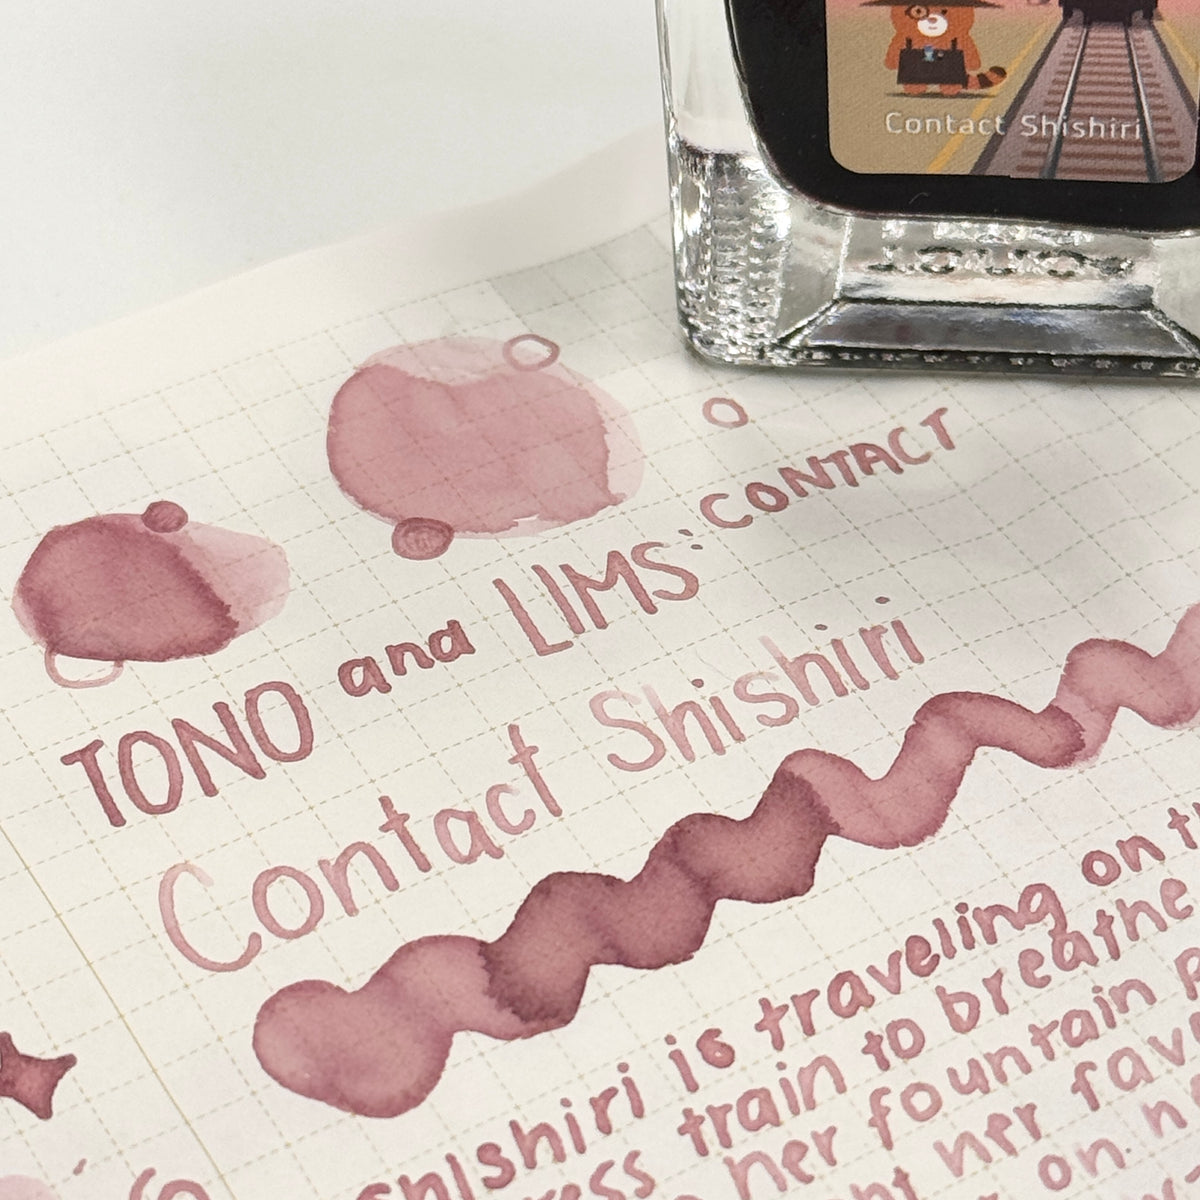 Contact Shishiri
TONO and LIMS: CONTACT
Contact Shishiri
shishiri is traveling on
train to breathe
her fountain
her
on